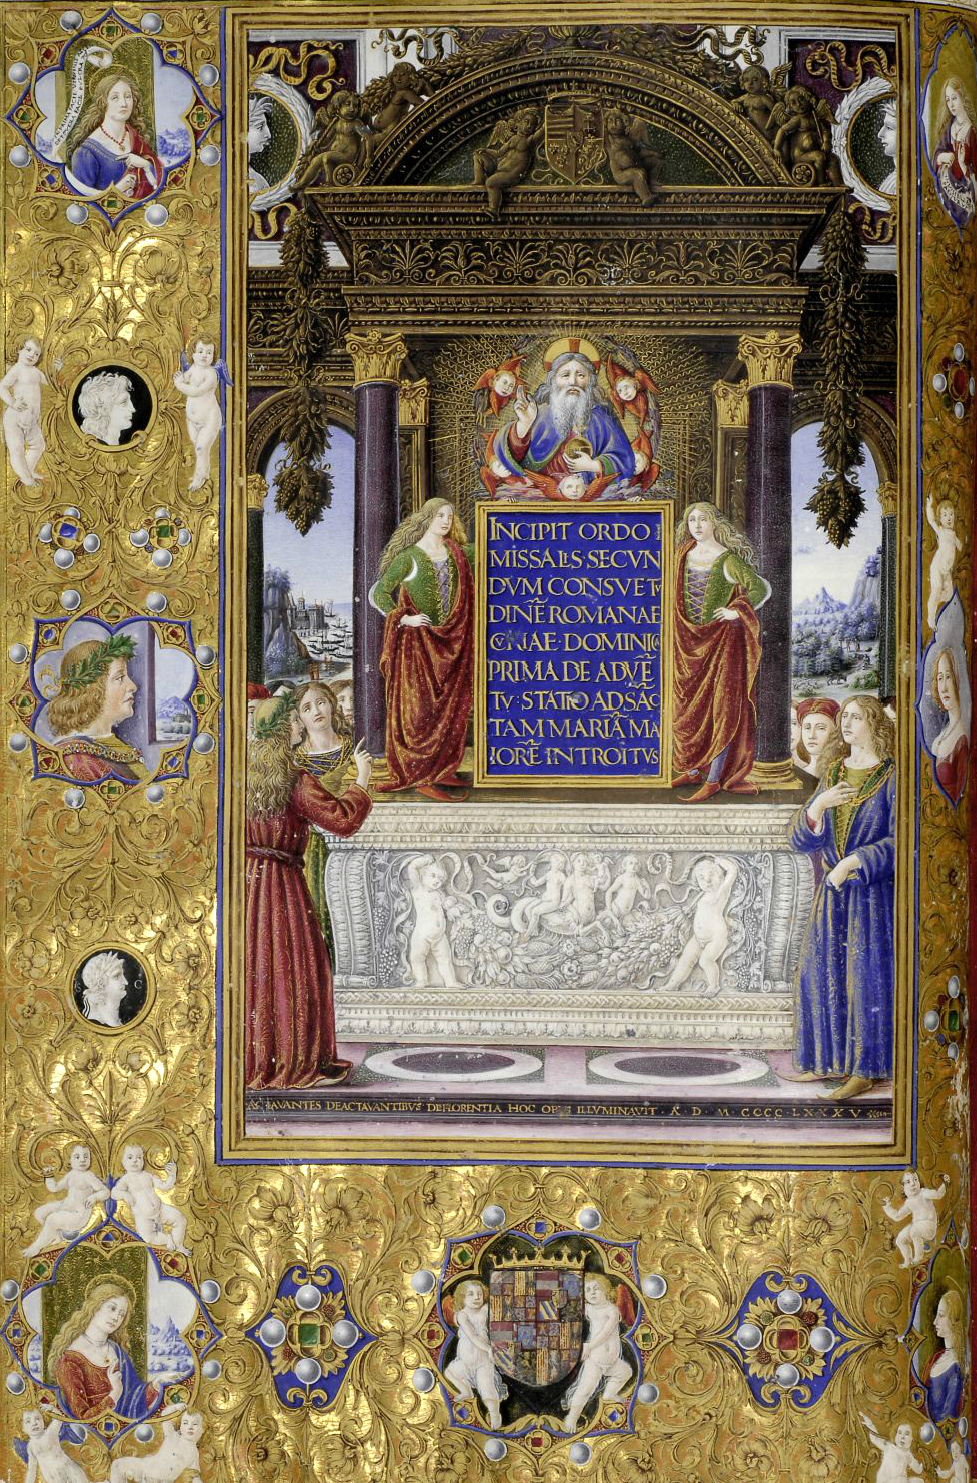 INCIPIT ORDO
MISSALIS SECVN
DVM CONSVET
DINĒ ROMANAE
CVRIAE DOMINIC
PRIMA DE ADVĒ
TV · STATIO AD SĀC
TAM MARIĀ MA
IORĒ INTROITVS
ACTAVANTES DEACTAVANTIBVS DEFLORENTIA HOC OPVS ILLVMINAVIT A D M CCCC LXXXV